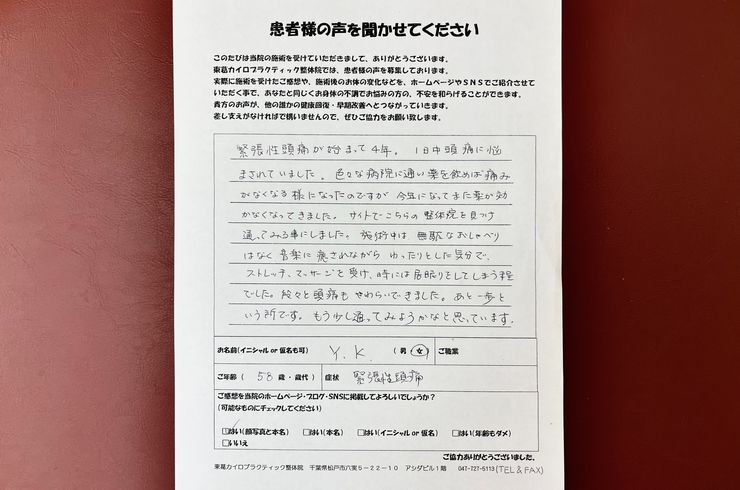 患者様の声を聞かせてください
このたびは当院の施術を受けていただきまして、ありがとうございます。
東葛カイロプラクティック整体院では、患者様の声を募集しております。
実際に施術を受けたご感想や、施術後のお体の変化などを、ホームページやＳＮＳでご紹介させて
いただく事で、あなたと同じくお身体の不調でお悩みの方の、不安を和らげることができます。
貴方のお声が、他の誰かの健康回復・早期改善へとつながっていきます。
差し支えがなければで構いませんので、ぜひご協力をお願い致します。
緊張性頭痛が始まって4年。1日中頭痛に悩
まされていました。色々な病院に通い薬を飲めば痛み
がなくなる様になったのですが今年になってまた薬が効
かなくなってきました。サイトでこちらの整体院を見つけ
通ってみる事にしました。施術中は無駄なおしゃべり
はなく音楽に癒されながらゆったりとした気分で、
ストレッチ、マッサージを受け、時には居眠りをしてしまう程
でした。段々と頭痛もやわらいできました。あと一歩と
いう所です。もう少し通ってみようかなと思っています。
お名前(イニシャル or 仮名も可) Y.K. (男・女) ご職業
ご年齢 (58 歳・歳代) 症状 緊張性頭痛
ご感想を当院のホームページ・ブログ・SNSに掲載してよろしいでしょうか？
(可能なものにチェックしてください)
□はい(顔写真と本名) □はい(本名) □はい(イニシャル or 仮名) □はい(年齢もダメ)
□いいえ
ご協力ありがとうございました。
東葛カイロプラクティック整体院 千葉県松戸市六実５－２２－１０ アシダビル１階 047-727-5113(TEL & FAX)